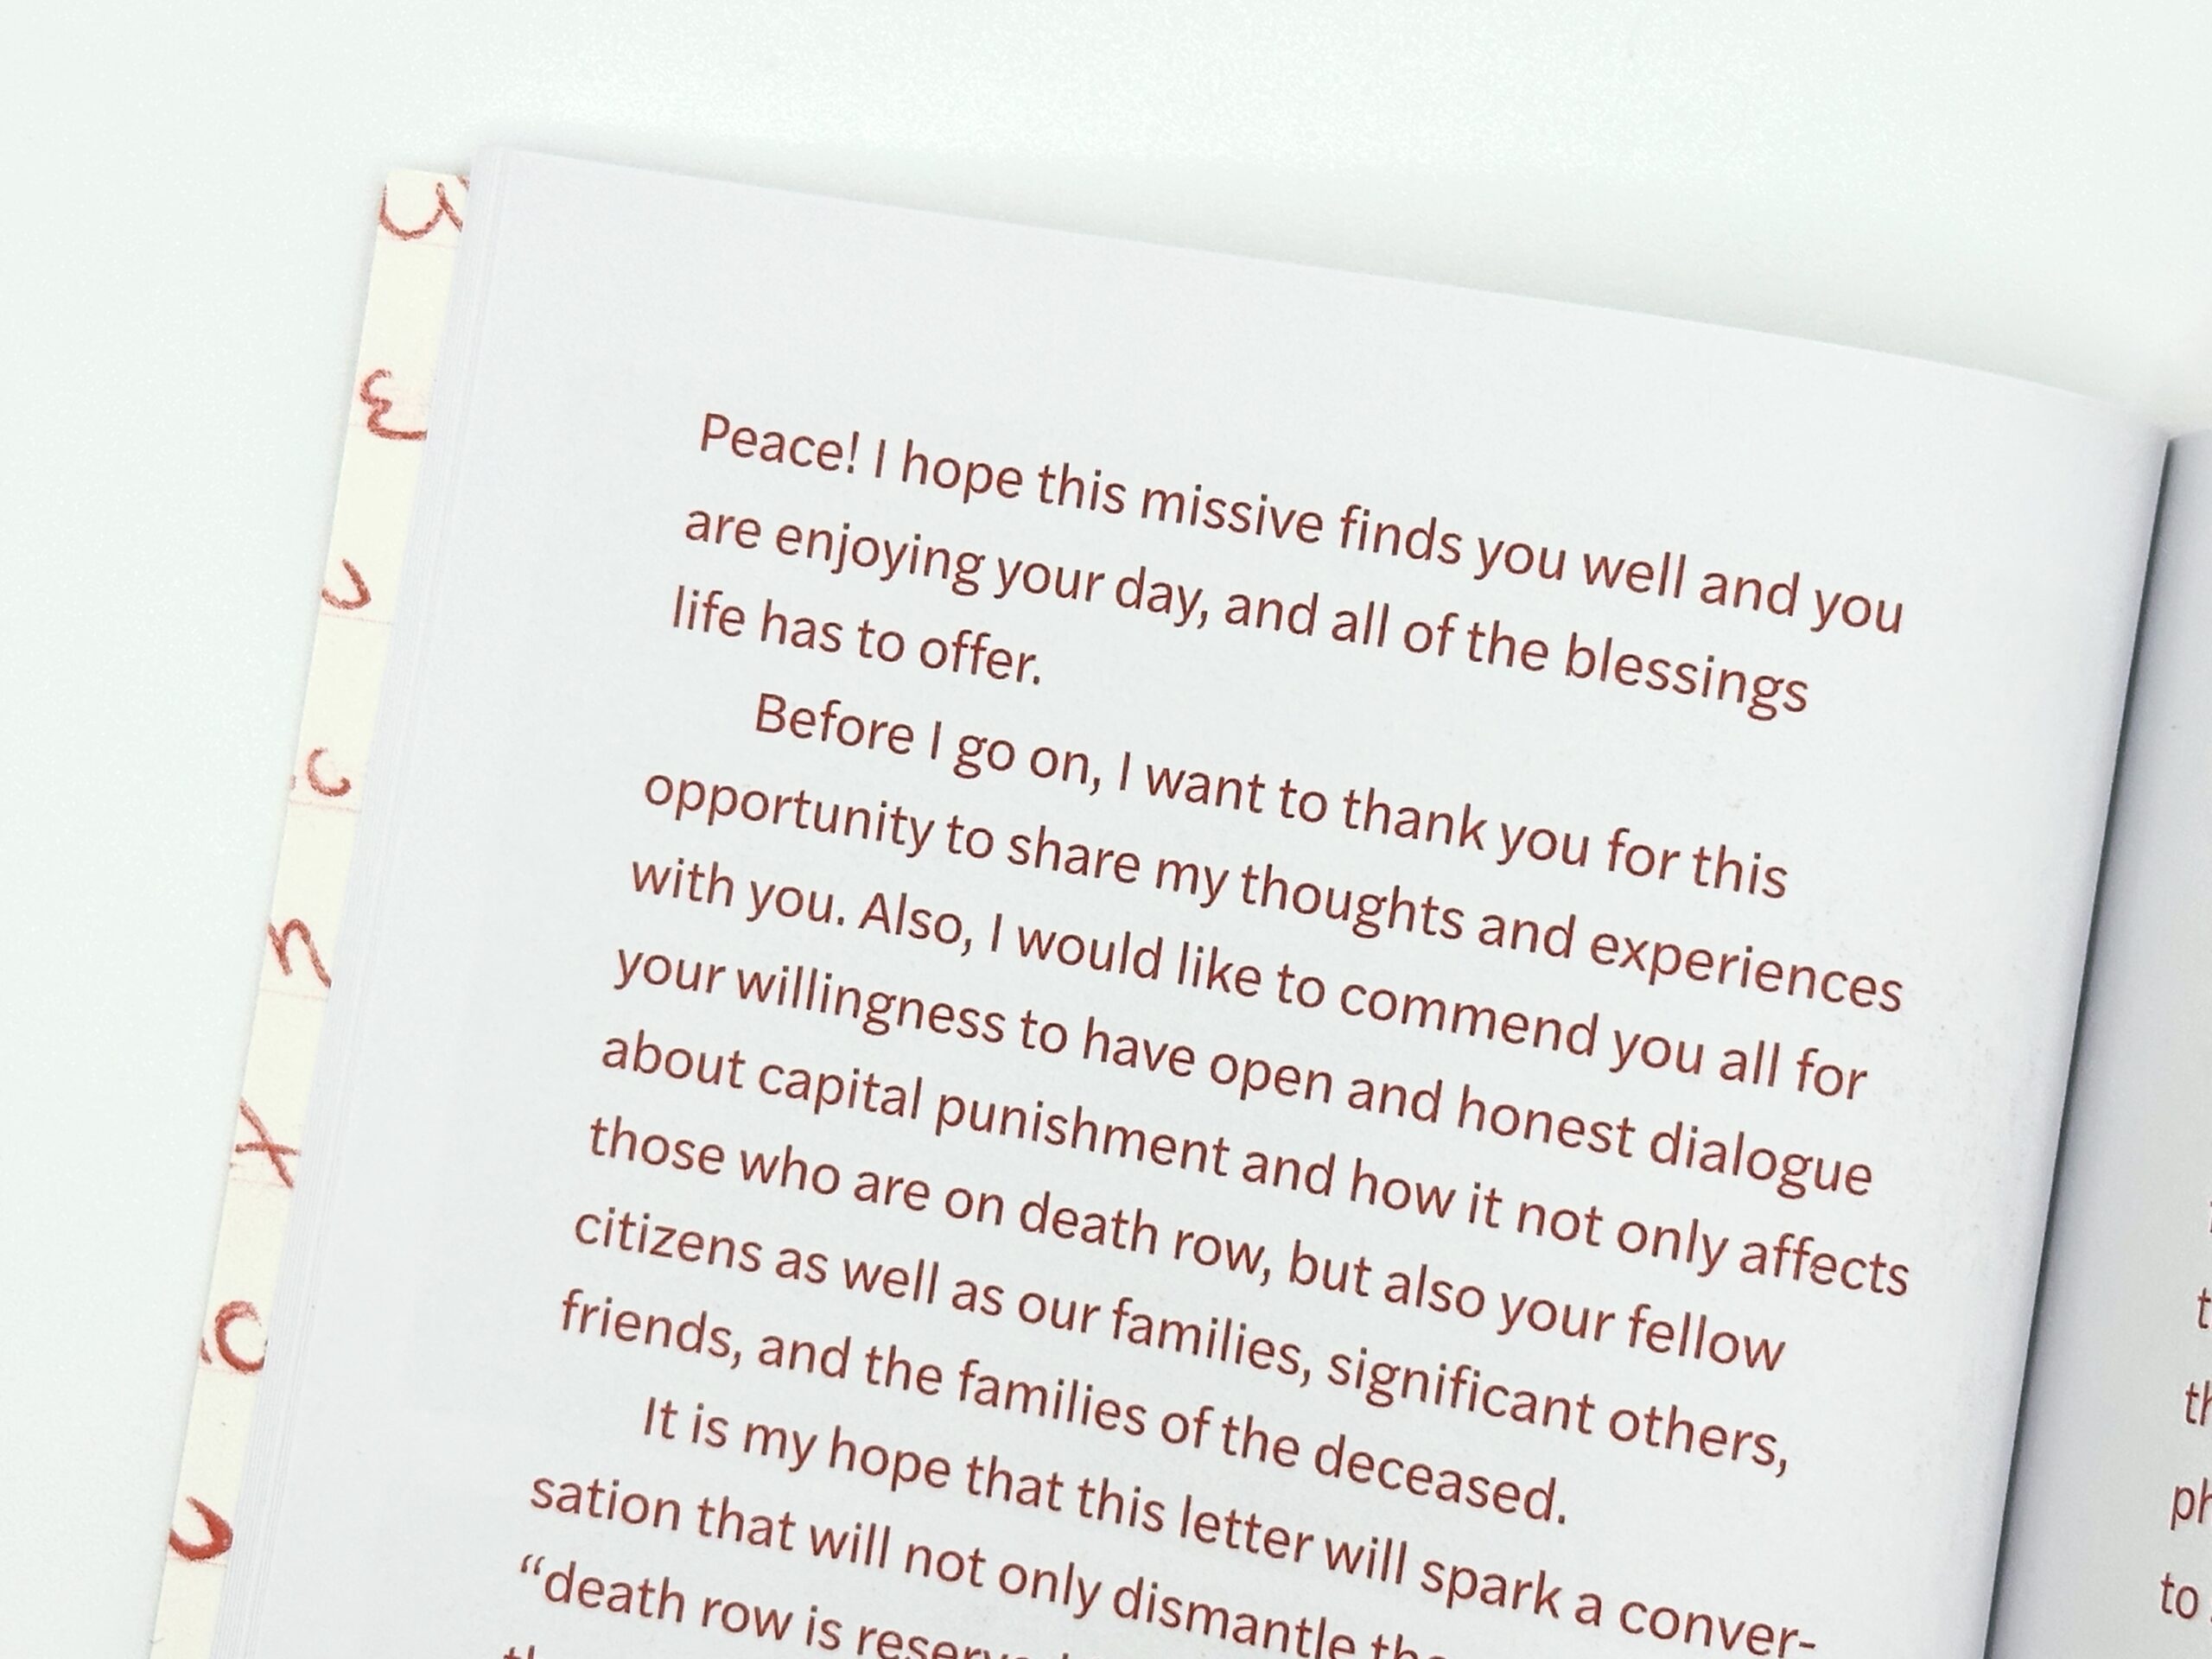 Peace! I hope this missive finds you well and you
are enjoying your day, and all of the blessings
life has to offer.
Before I go on, I want to thank you for this
opportunity to share my thoughts and experiences
with you. Also, I would like to commend you all for
your willingness to have open and honest dialogue
about capital punishment and how it not only affects
those who are on death row, but also your fellow
citizens as well as our families, significant others,
friends, and the families of the deceased.
It is my hope that this letter will spark a conver-
sation that will not only dismantle
“death row is
to